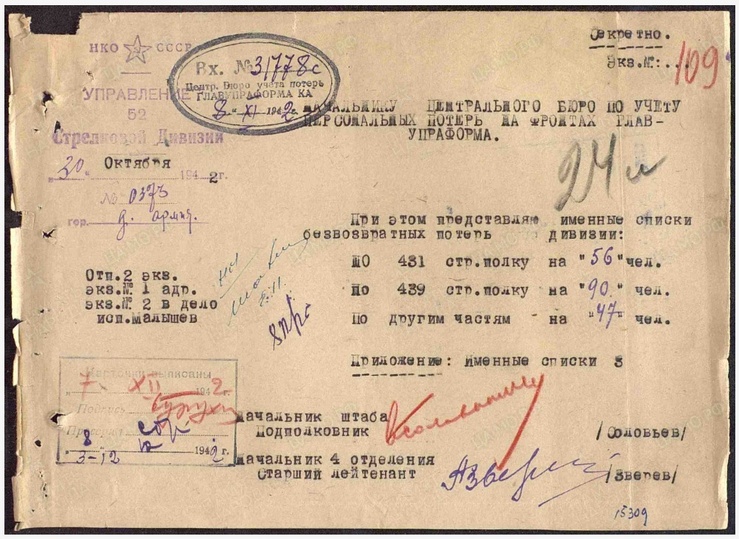 Секретно.
НКО СССР
Экз.№:...
109
Вх. № 31778с
Центр. Бюро учета потерь
ГЛАВУПРАФОРМА КА
8 XI 1942г.
УПРАВЛЕНИЕ
52
Стрелковой Дивизии
НАЧАЛЬНИКУ ЦЕНТРАЛЬНОГО БЮРО ПО УЧЕТУ
ПЕРСОНАЛЬНЫХ ПОТЕРЬ НА ФРОНТАХ ГЛАВ-
УПРАФОРМА.
24 л
"20" Октября 1942г.
№ 0373
гор. д. армия.
При этом представляю именные списки
безвозвратных потерь дивизии:
ПО 431 стр.полку на "56" чел.
По 439 стр.полку на "90" чел.
По другим частям на "47" чел.
Отп.2 экз.
экз.№ 1 адр.
экз.№ 2 в дело
исп.Малышев
8.11.
Приложение: Именные списки 3
Карточки выписаны
7 XII 1942
Подпись
8 1942г.
3-12
Начальник штаба
Подполковник /Соловьев/
Начальник 4 отделения
Старший лейтенант АЗверев /Зверев/
15309